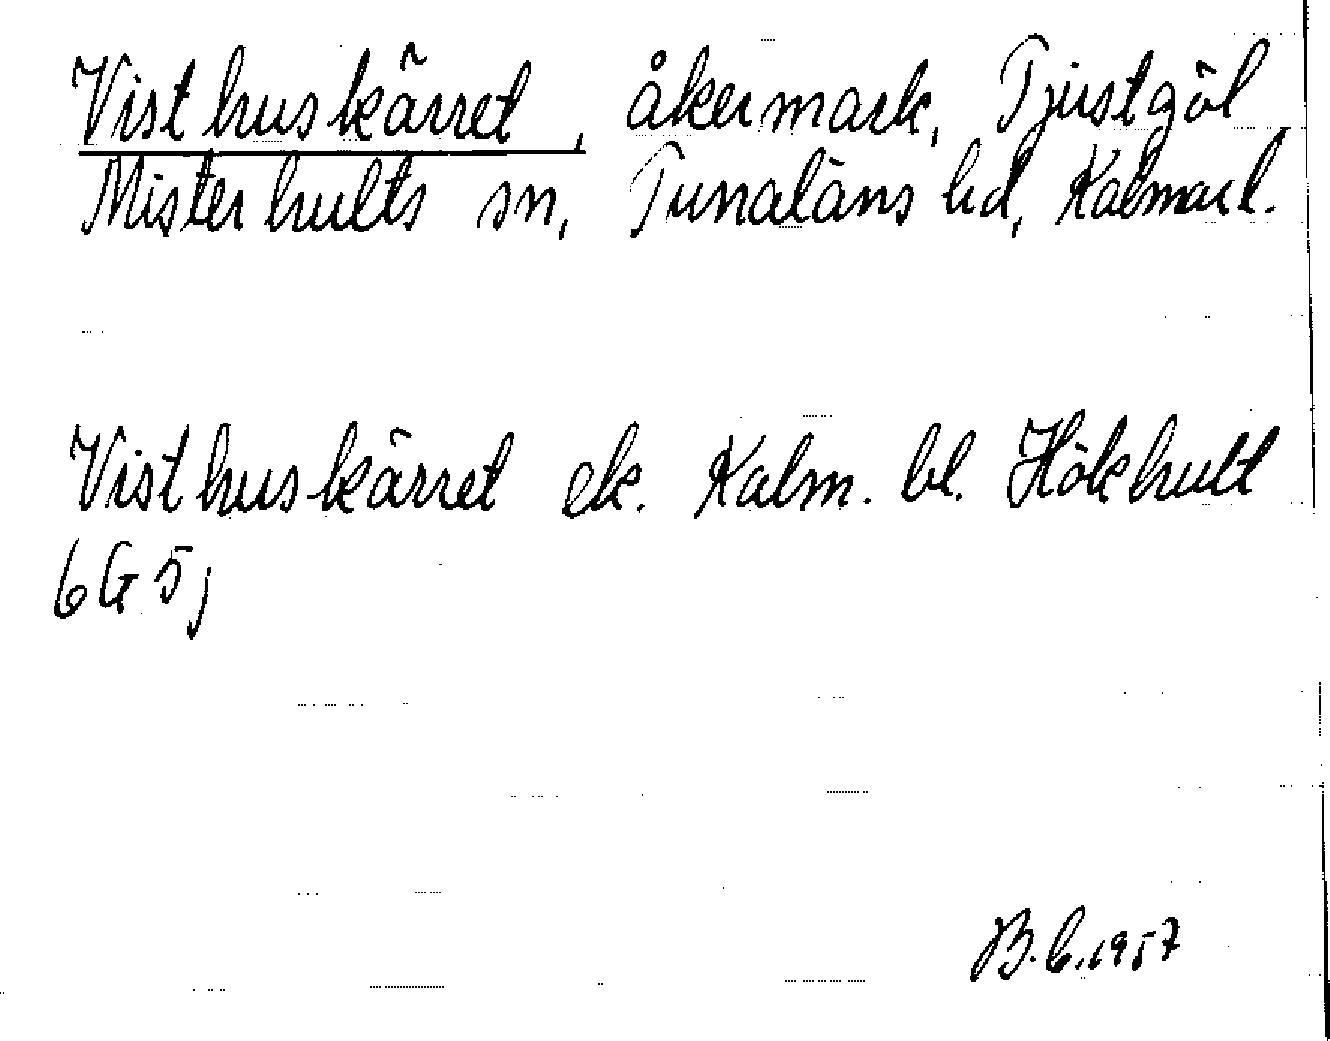 Visthuskärret, åkermark, Tjustgöl,
Misterhults sn, Tunaläns hd, Kalmar l.
Visthuskärret ek. Kalm. bl. Hökhult
6G 5j
B. L. 1957